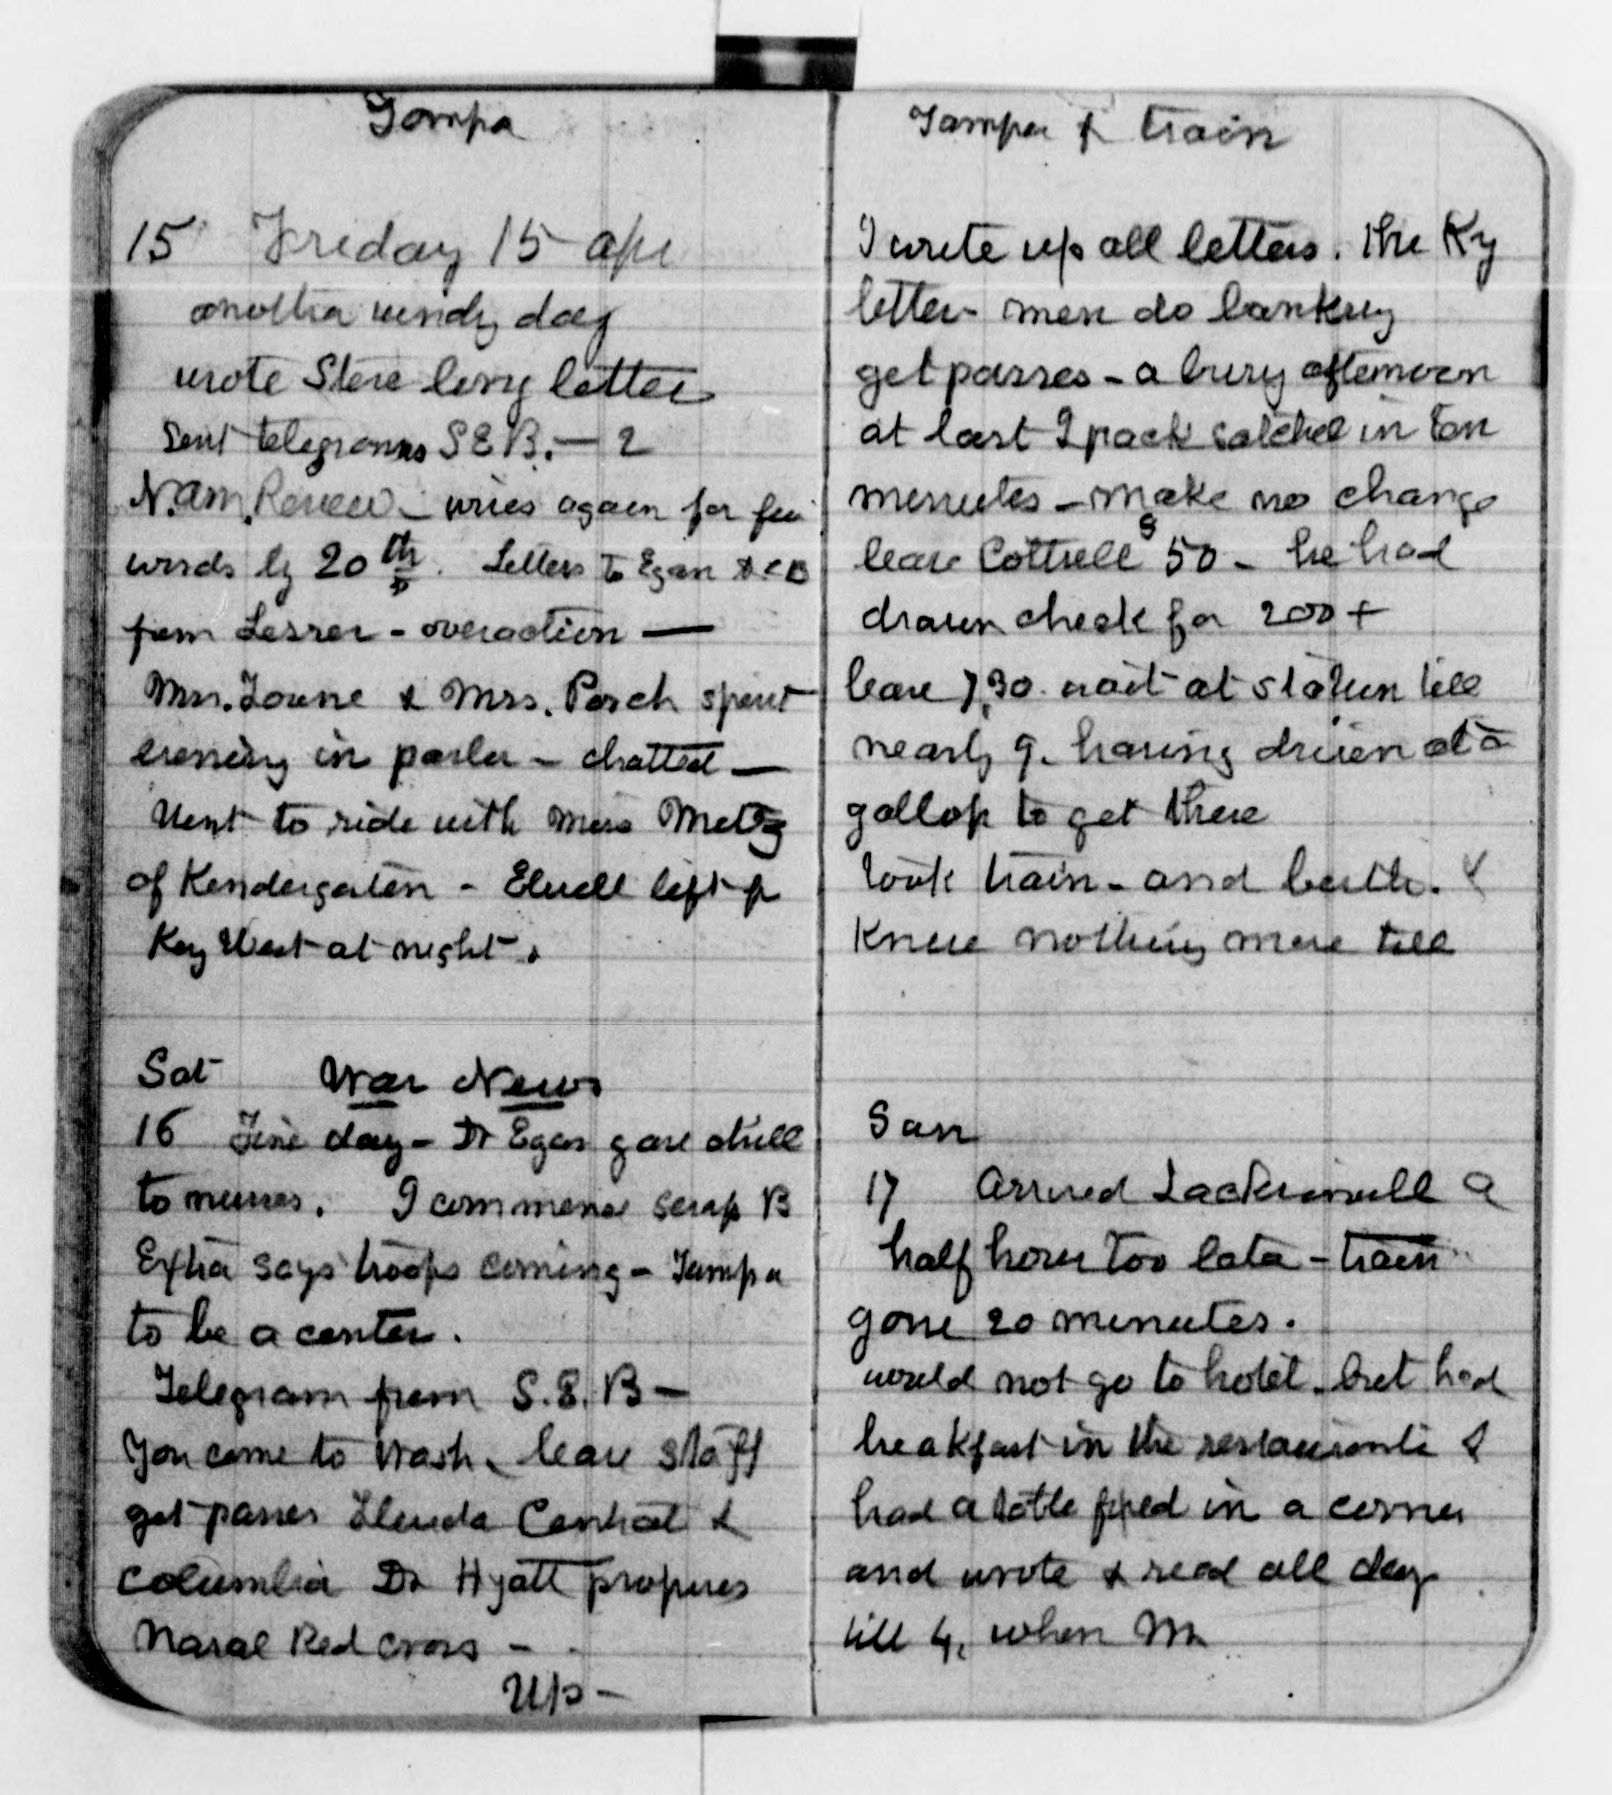 Tampa
15 Friday 15 apr
another windy day
wrote Steve long letter
Sent telegrams S E B. — 2
N. Am. Review — wries again for few
words by 20th. Letters to Egan & C B
from Lesser - overaction —
Mrs. & Mrs. Porch spent
evening in parlor - chatted —
Went to ride with Miss Metz
of Kendergarten - Elwell left for
Key West at night.
Sat War News
16 Fine day - Dr Egan gave drill
to nurses. I commence scrap B
Extra says troops coming - Tampa
to be a center.
Telegram from S. E. B —
You come to Wash - leave staff
get passes Florida Central &
Columbia Dr Hyatt proposes
Naval Red Cross -
Up -
Tampa & train
I write up all letters. The Ky
letter - men do banking
get passes - a busy afternoon
at last I pack satchel in ten
minutes - make no change
leave Cottrell $ 50 - he had
drawn check for 200 +
leave 7,30. wait at station till
nearly 9. having driven at a
gallop to get there
took train - and berth. &
Knew nothing more till
Sun
17 Arrived Jacksonvill a
half hour too late - train
gone 20 minutes.
would not go to hotel - but had
breakfast in the restaurante &
had a table fixed in a corner
and wrote & read all day
till 4, when Mr